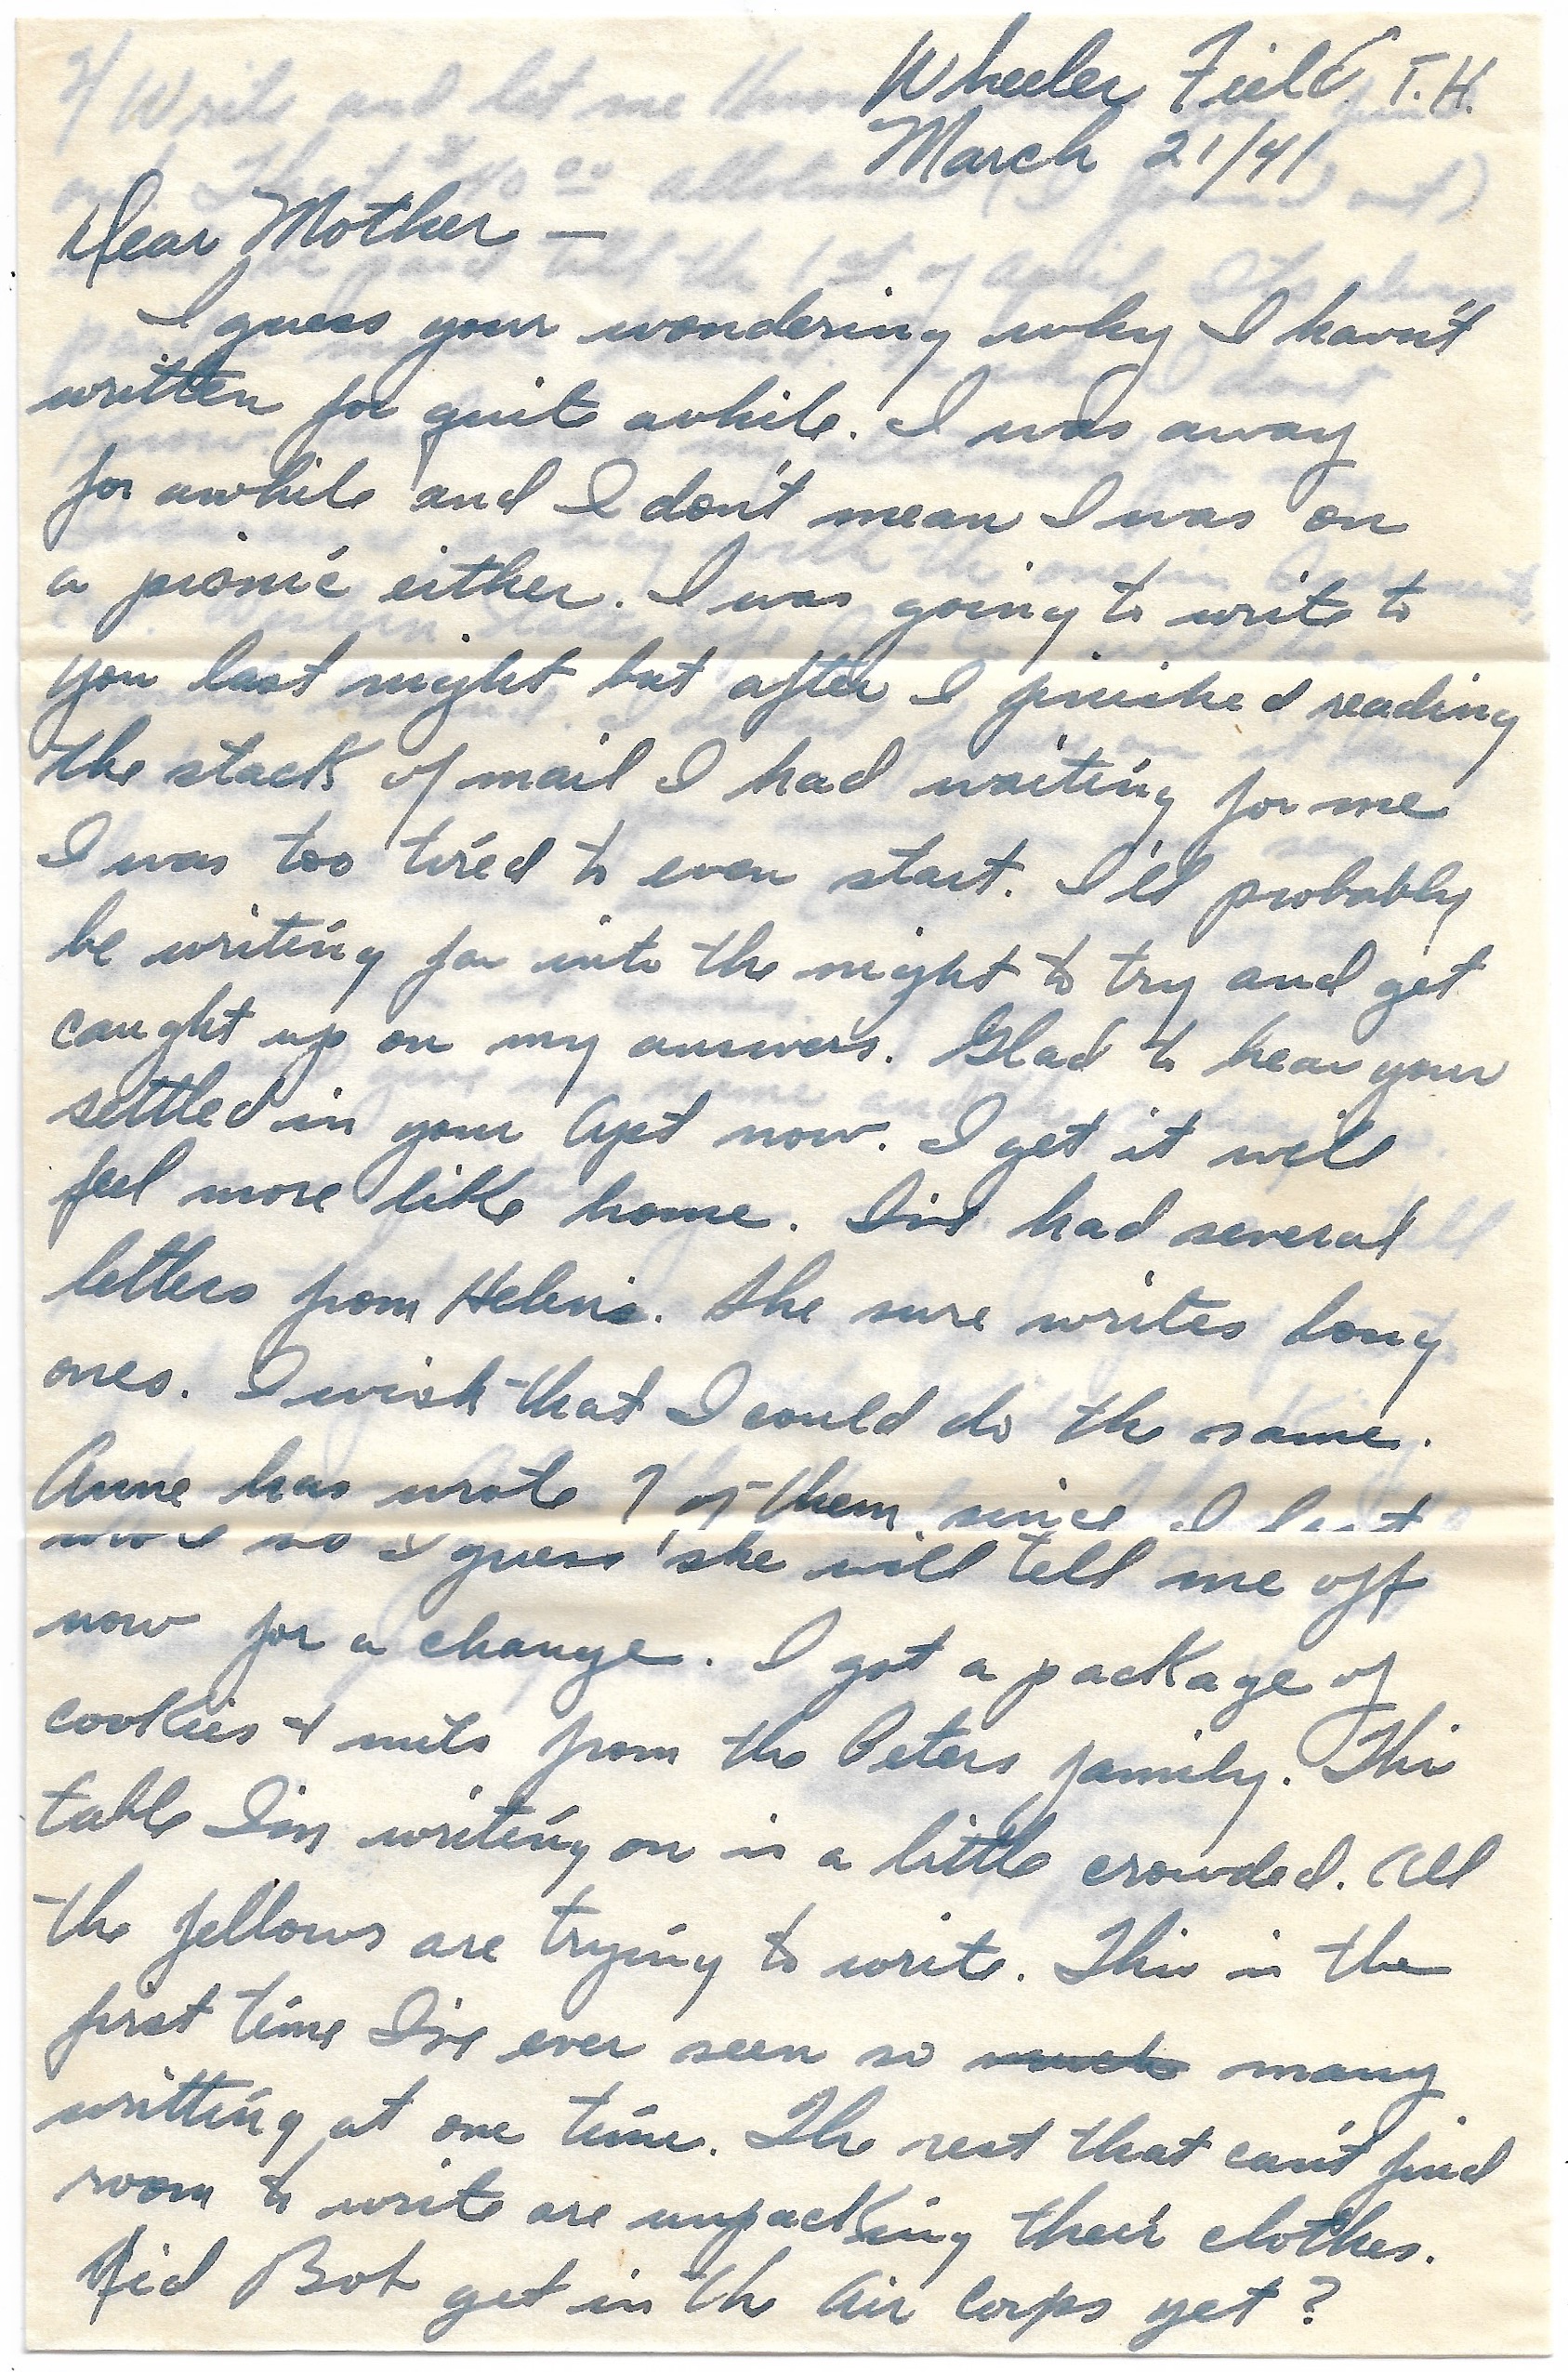 Wheeler Field T.H.
March 21/41
Dear Mother —
I guess your wondering why I havn't
written for quite awhile. I was away
for awhile and I don't mean I was on
a picnic either. I was going to write to
you last night but after I finished reading
the stack of mail I had waiting for me
I was too tired to even start. I'll probably
be writing far into the night to try and get
caught up on my answers. Glad to hear your
settled in your Apt now. I get it will
feel more like home. I've had several
letters from Helene. She sure writes long
ones. I wish that I could do the same.
Anne has wrote 7 of them since I last
wrote so I guess she will tell me off
now for a change. I got a package of
cookies + nuts from the Peters family. This
table I'm writing on is a little crowded. All
the fellows are trying to write. This is the
first time I've ever seen so much many
writting at one time. The rest that can't find
room to write are unpacking their clothes.
Did Bob get in the Air Corps yet?